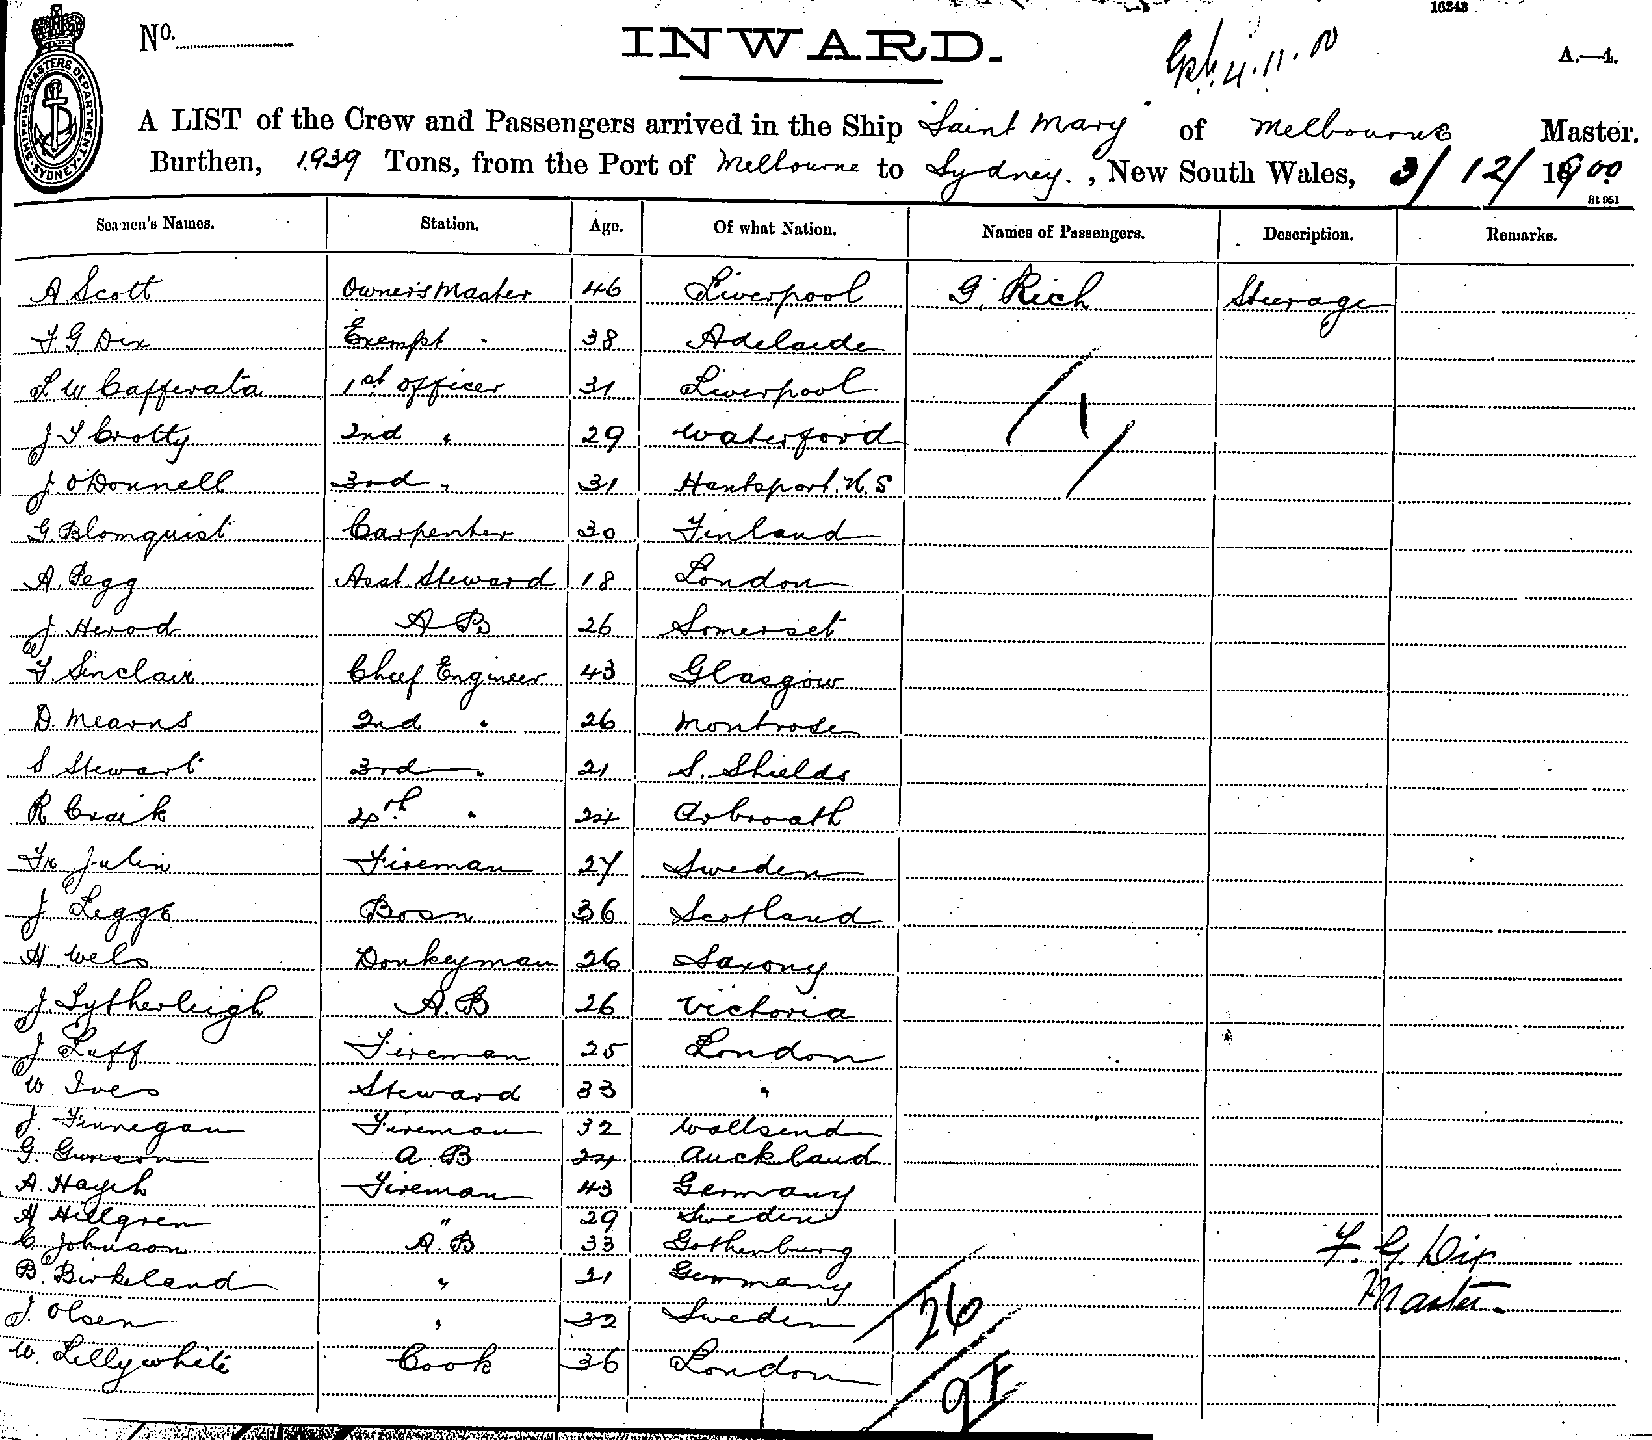 16243
No.
INWARD.
4.11.00
A.—4.
SHIPPING MASTERS DEPARTMENT. SYDNEY
A LIST of the Crew and Passengers arrived in the Ship "Saint Mary" of Melbourne Master.
Burthen, 1939 Tons, from the Port of Melbourne to Sydney., New South Wales, 3/12/1900
St 951
Seamen's Names. Station. Age. Of what Nation. Names of Passengers. Description. Remarks.
A Scott Owners Master 46 Liverpool G. Rich Steerage
F. G Dix Exempt 38 Adelaide
L W Cafferata 1st officer 31 Liverpool
J S Crotty 2nd " 29 Waterford 1
J. O'Donnell 3rd " 31 Hantsport. N. S
G Blomquist Carpenter 30 Finland
A. Pegg Asst. Steward 18 London
J Herod A B 26 Somerset
F Sinclair Chief Engineer 43 Glasgow
D. Mearns 2nd " 26 Montrose
S Stewart 3rd " 21 S. Shields
R Craik 4th " 24 Arbroath
Fr Julin Fireman 27 Sweden
J Legge Bosn 36 Scotland
H Wels Donkeyman 26 Saxony
J. Sytherleigh A. B 26 Victoria
J Luff Fireman 25 London
W Ives Steward 33 "
J. Finnegan Fireman 32 Wallsend
G. Gunson A. B 24 Auckland
A. Hayek Fireman 43 Germany
H Hillgren " 29 Sweden
C Johnson A. B 33 Gothenburg F. G. Dix
B. Birkeland " 21 Germany Master
J. Olsen " 32 Sweden 26
W. Lillywhite Cook 36 London